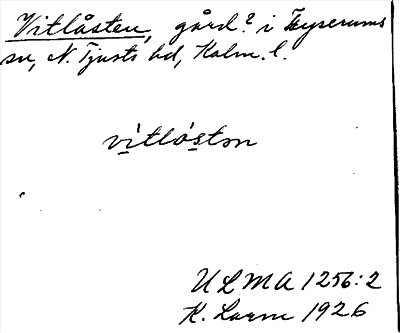 Vitlåsten, gård? i Hyserums
sn, N. Tjusts hd, Kalm. l.
vi̱tlós̱tən
ULMA 1256:2
K. Lorm 1926